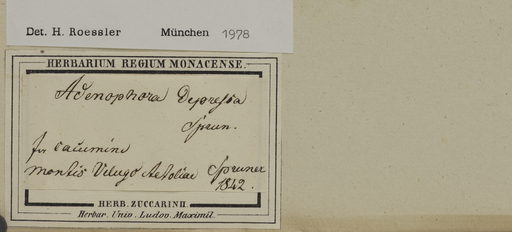 Det. H. Roessler München 1978
HERBARIUM REGIUM MONACENSE.
Adenophora Depressa
Sprun.
in cacumine
montis Velugo Aetoliae Spruner
1842.
HERB. ZUCCARINII
Herbar. Univ. Ludov. Maximil.